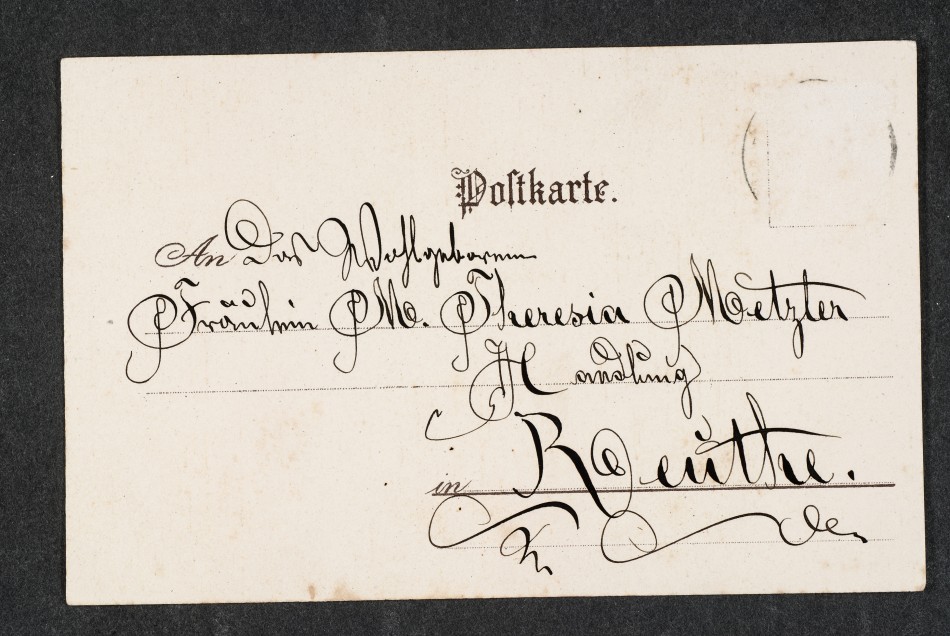 Postkarte.
An Das Wohlgeboren
Fräulein M. Theresia Metzler
Handlung
in Reuthe.